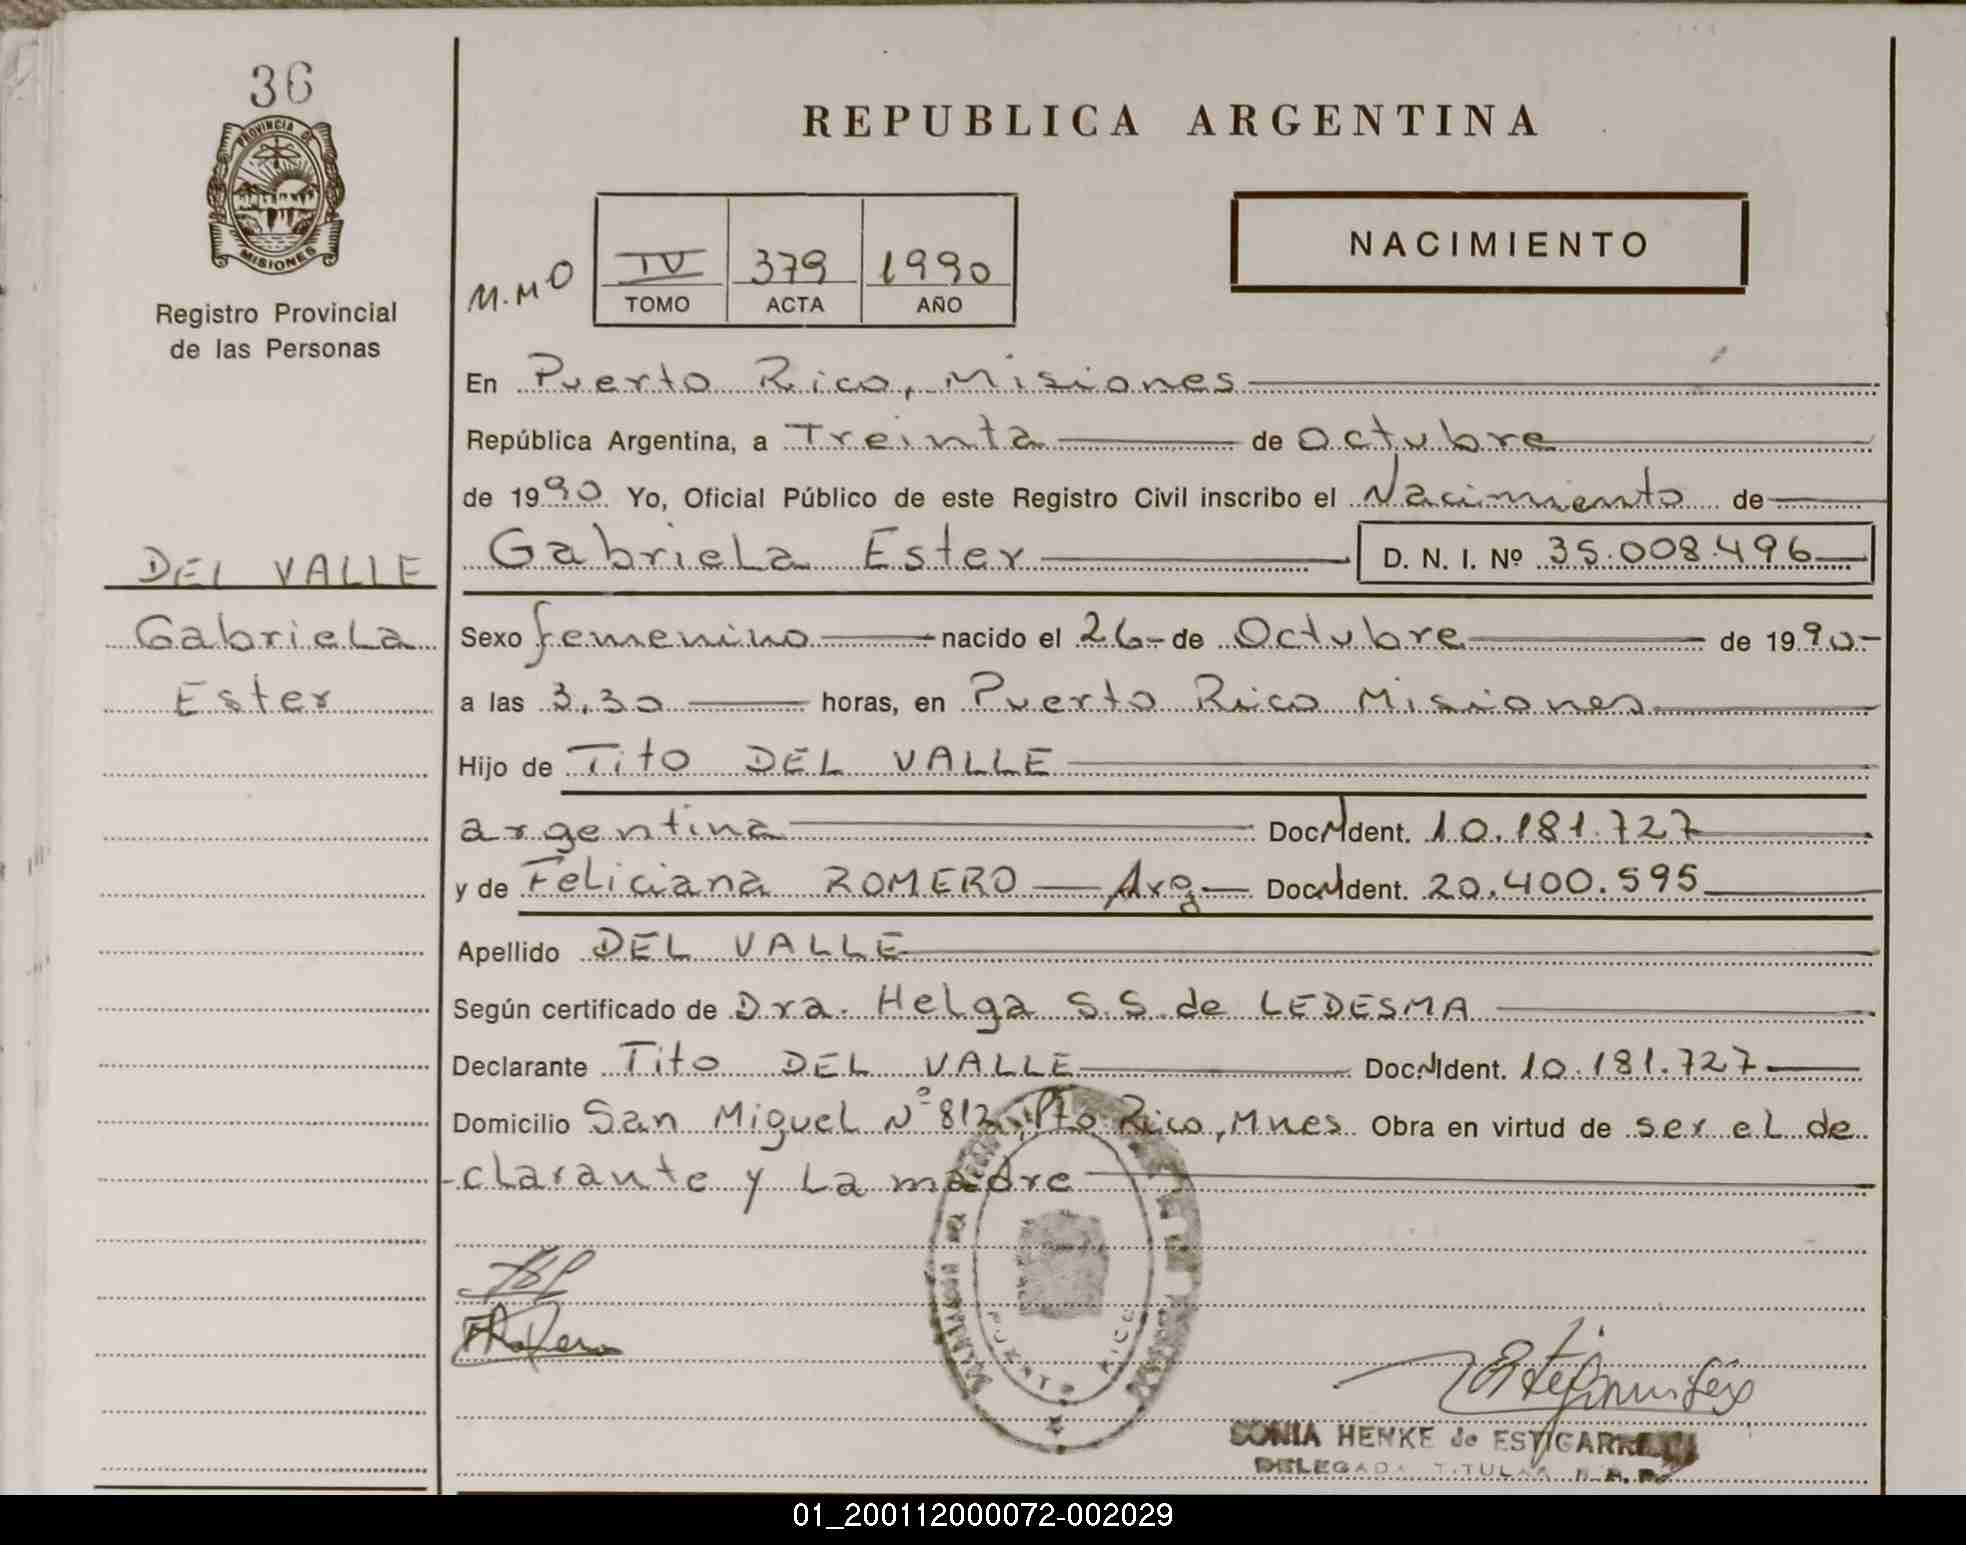 36
PROVINCIA DE
MISIONES
Registro Provincial
de las Personas
DEL VALLE
Gabriela
Ester
REPUBLICA ARGENTINA
NACIMIENTO
M.M O
IV 379 1990
TOMO ACTA AÑO
En Puerto Rico, Misiones
República Argentina, a Treinta de Octubre
de 1990 Yo, Oficial Público de este Registro Civil inscribo el Nacimiento de
Gabriela Ester D. N. I. Nº 35.008.496
Sexo femenino nacido el 26 de Octubre de 1990
a las 3,30 horas, en Puerto Rico Misiones
Hijo de Tito DEL VALLE
argentina Doc. Ident. 10.181.727
y de Feliciana ROMERO Arg. Doc. Ident. 20.400.595
Apellido DEL VALLE
Según certificado de Dra. Helga S.S. de LEDESMA
Declarante Tito DEL VALLE Doc. Ident. 10.181.727
Domicilio San Miguel Nº 812, Pto Rico, Mnes Obra en virtud de ser el de
clarante y La madre
PUERTO RICO
SONIA HENKE de ESTIGARRIBIA
DELEGADA TITULAR R.P.P.
01_200112000072-002029